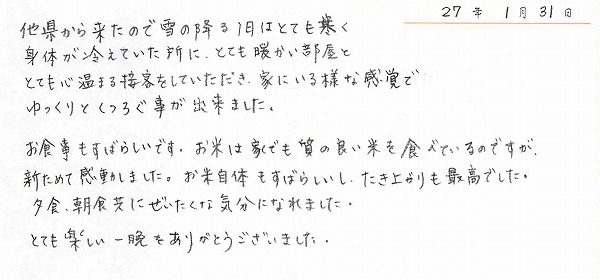 27年 1月 31日
他県から来たので雪の降る1日はとても寒く
身体が冷えていた所に、とても暖かい部屋と
とても心温まる接客をしていただき、家にいる様な感覚で
ゆっくりとくつろぐ事が出来ました。
お食事もすばらしいです。お米は家でも質の良い米を食べているのですが、
新ためて感動しました。お米自体もすばらしいし、たき上がりも最高でした。
夕食、朝食共にぜいたくな気分になれました。
とても楽しい一晩をありがとうございました。